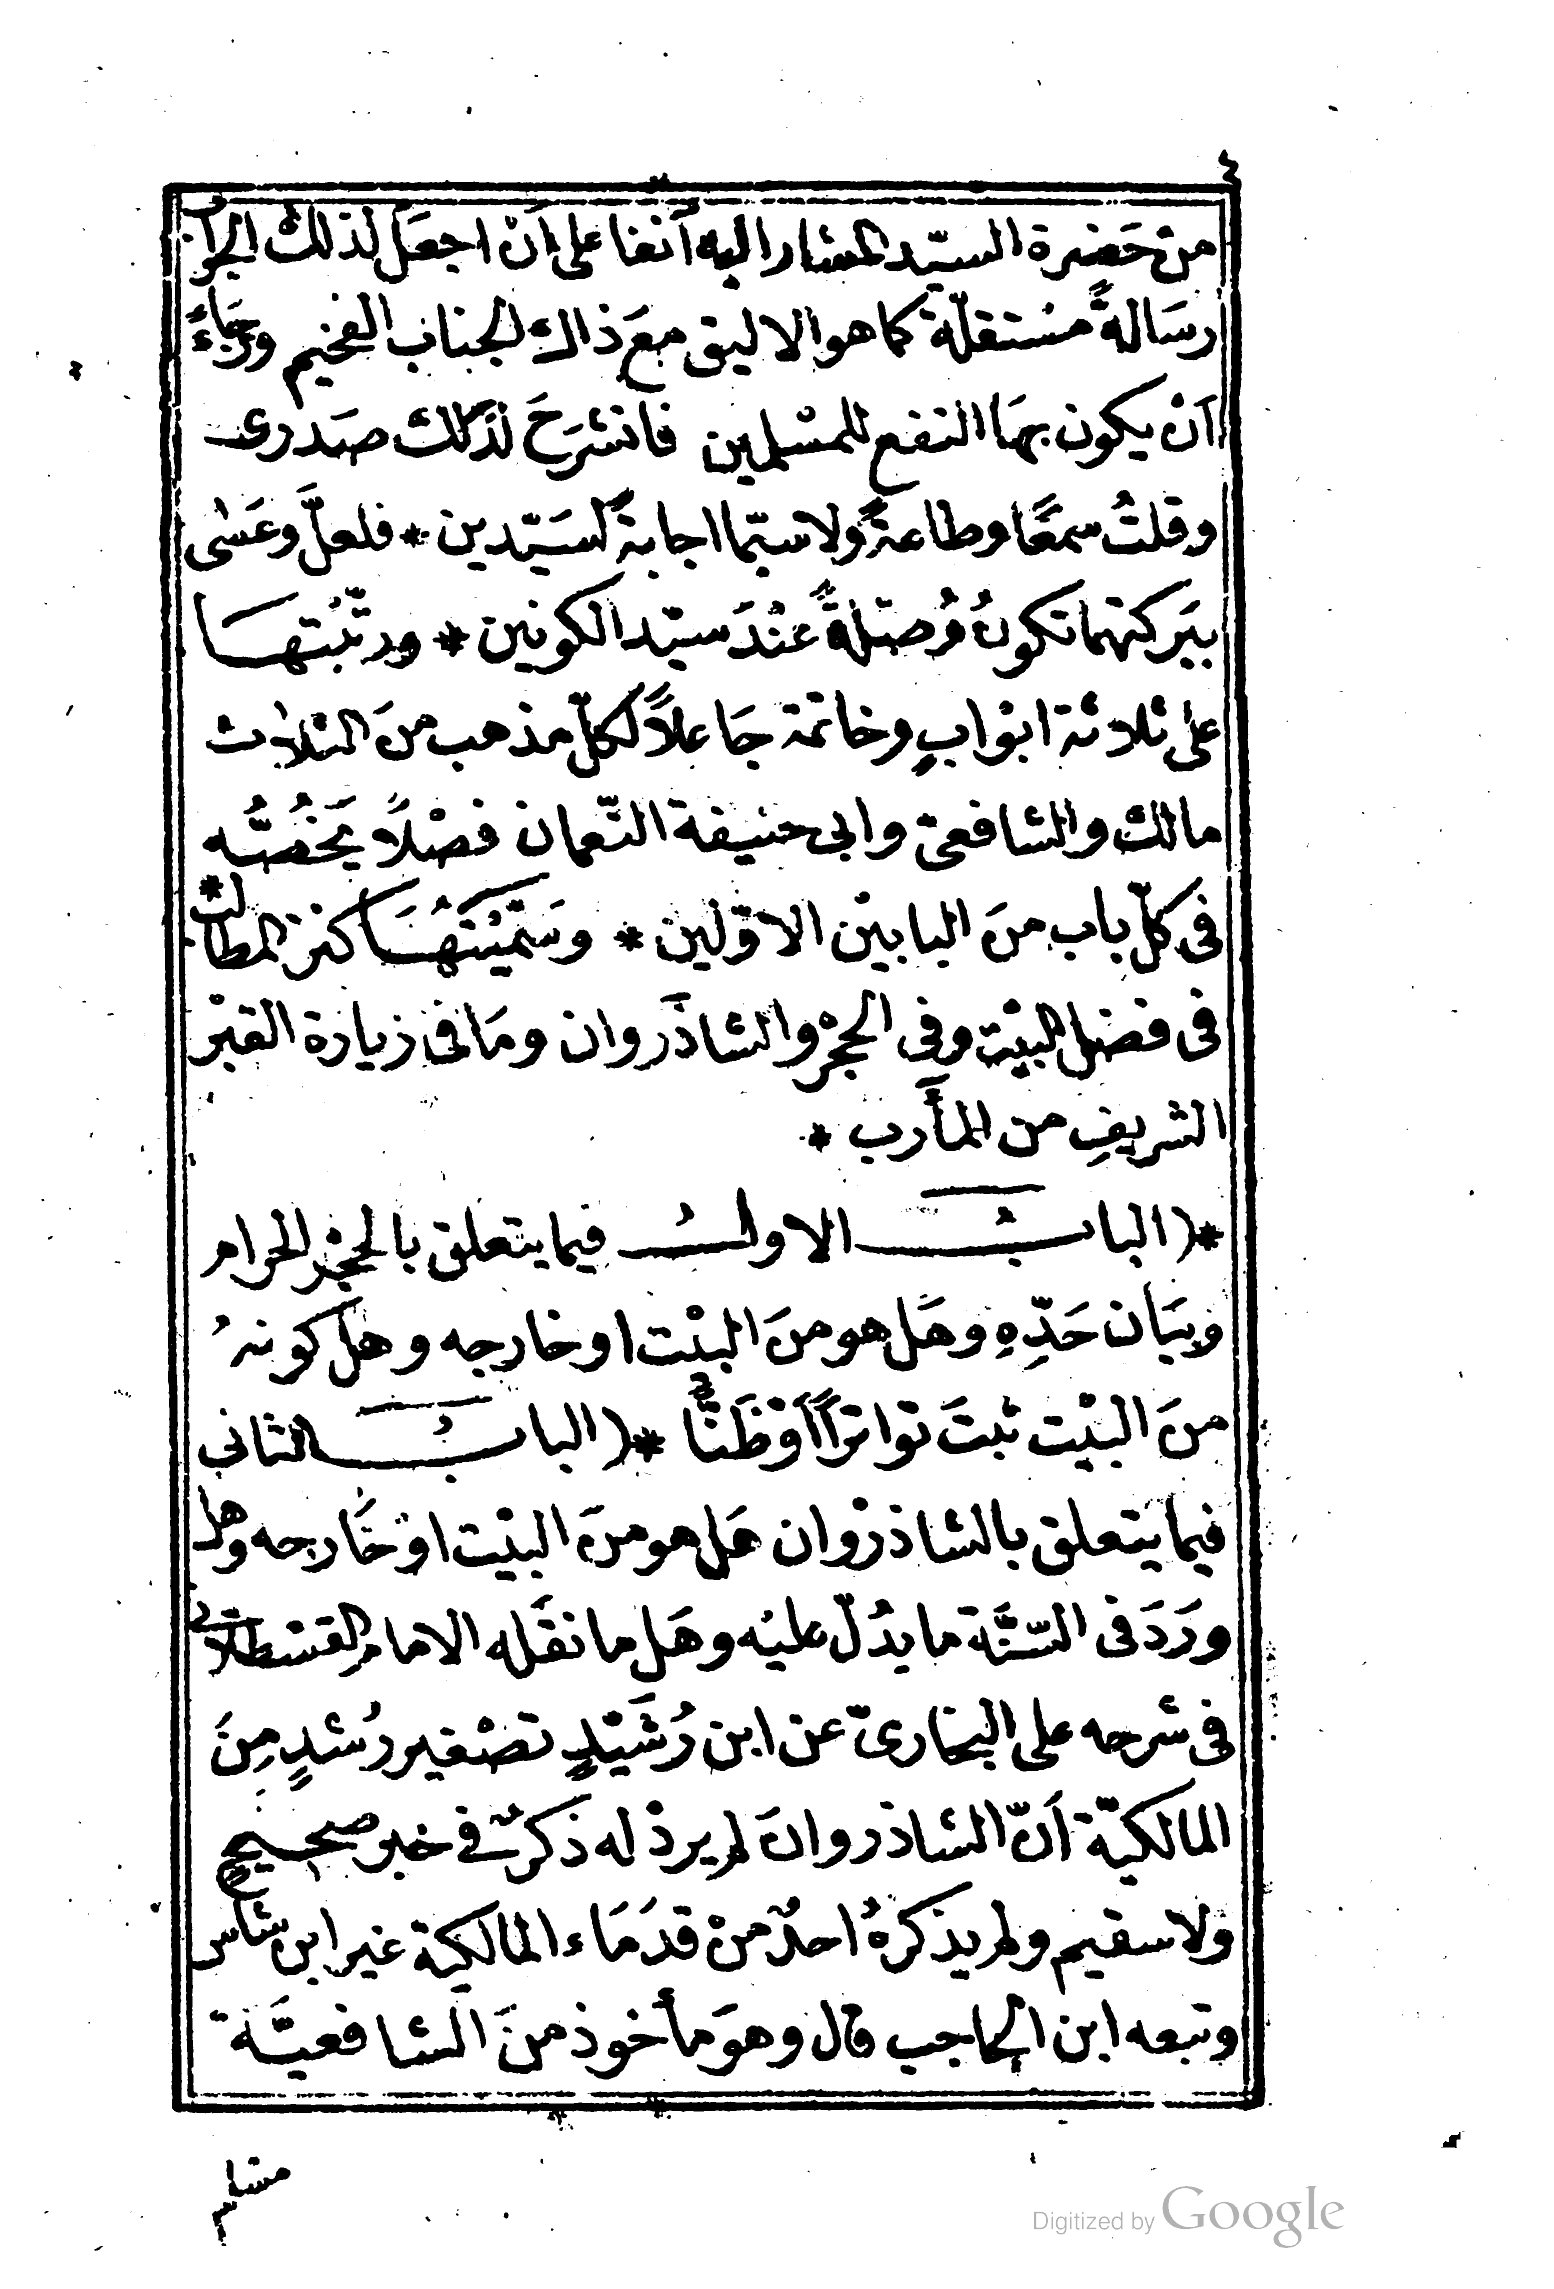 ٤
من حَضرة السيّد المشار اليه أنفا على أنْ اجعَل لذلك الجواب
رسَالةً مسْتقلّة كما هو الاليق مع ذاك الجناب الفخيم ورجَاءً
اَنْ يكون بهَا النفع للمسْلمين فانشرَحَ لذلك صَدرى
وقلتُ سمعًا وطاعةً ولا سيّما اجابةً لسَيّدين * فلعلّ وعَسٰى
ببَركتهما تكونُ وُصْلةً عنْدَ سيّد الكونين * ورتّبْتها
على ثلاثة ابْوابٍ وخاتمة جَاعلاً لكلّ مذهب منَ الثلاث
مالك والشافعىّ وابى حنيفة النّعمان فصْلاً يَخُصُّه
فى كلّ باب منَ البابيْن الاوّلين * وسَمّيْتُهَا كنز المطالب *
فى فضل البيْت وفى الحجْر والشاذَروان ومَا فى زيارة القبْر
الشريفِ من المأرب *
*( البابُ الاولُ فيما يتعلق بالحجْر الحرام
وبيَان حَدِّهِ وهَل هو منَ البيْت او خارجه وهل كونهُ
منَ البيْت ثبتَ تواتراً اَوْ ظَنًّا *( البابُ الثانى
فيما يتعلق بالشاذرْوان هَل هو منَ البيْت اوْ خَارجه وهل
ورَدَ فى السّنَّة ما يدُلّ عليْه وهَل ما نقَله الامام القسْطلاّنى
فى شرحه على البخارىّ عن ابن رُشَيْدٍ تصْغير رُشدٍ مِنَ
المالكيّة اَنّ الشاذروانَ لم يردْ له ذكرٌ فى خبر صحيحٍ
ولا سقيم ولم يذكرهُ احدٌ منْ قدَمَاء المالكية غير ابن شاس
وتبعه ابن الحاجب قال وهوَ مأخوذ منَ الشافعيَّة
مسلم
Digitized by Google